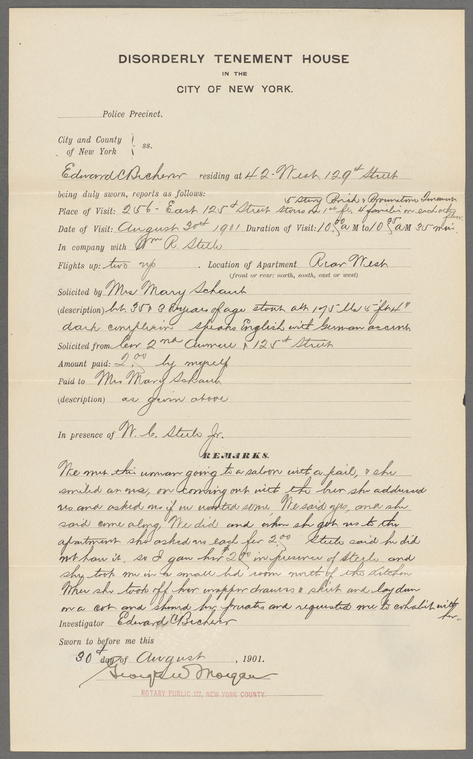 DISORDERLY TENEMENT HOUSE
IN THE
CITY OF NEW YORK.
Police Precinct.
City and County
of New York
ss.
Edward C Becherer residing at 42-West 129th Street
being duly sworn, reports as follows:
5 story Brick & Brownstone Tenement
Place of Visit: 256- East 125th Street stores on 1st fl. 4 families on each other floor
Date of Visit: August 1901 Duration of Visit: 10 00 A M to 10 35 A M 35 min.
In company with Wm R. Steele
Flights up: two up. Location of Apartment Rear West
(front or rear: north, south, east or west)
Solicited by Mrs Mary Schaub
(description) bet 35 & 38 years of age stout abt 175 lbs 5 ft 4"
dark complexion speaks English with German accent
Solicited from Cor 2nd Avenue & 125th Street
Amount paid: 2.00 by myself
Paid to Mrs Mary Schaub
(description) as given above
In presence of W. C. Steele Jr.
REMARKS.
We met this woman going to a saloon with a pail, & she
smiled at us, on coming out with the beer she addressed
us and asked us if we wanted some. We said yes, and she
said come along. We did and when she got us to the
apartment she asked us each for 2.00 Steele said he did
not have it, so I gave her 2.00 in presence of Steele and
she took me in a small bed room north of the kitchen
When she took off her wrapper drawers & skirt and lay down
on a cot and showed her privates and requested me to cohabit with
her.
Investigator Edward C Becherer
Sworn to before me this
30th day of August, 1901.
George W Morgan
NOTARY PUBLIC NEW YORK COUNTY.